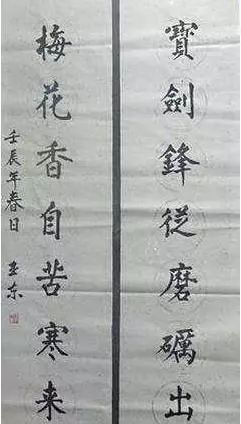 寶劍鋒從磨礪出
梅花香自苦寒来
壬辰年春日
王东